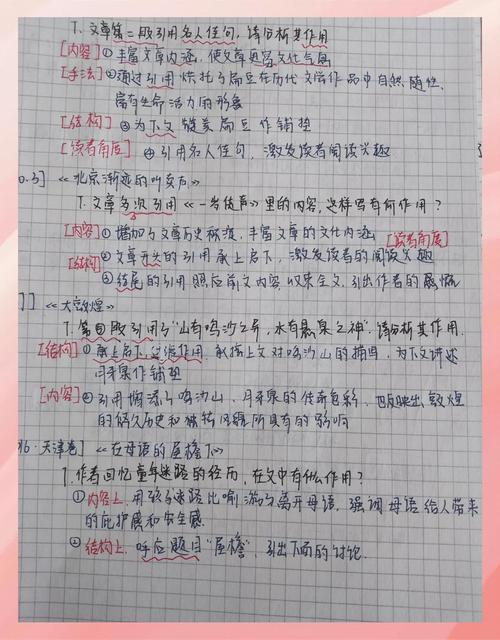 7. 文章第二段引用名人佳句，请分析其作用
[内容] ①丰富文章内涵，使文章更富文化气息
[手法] ②通过引用烘托了扁豆在历代文学作品中自然、随性、
富有生命活力的形象
[结构] ③为下文赞美扁豆作铺垫
[读者角度] ④引用名人佳句，激发读者阅读兴趣
《北京渐逝的叫卖声》
7. 文章多次引用《一岁货声》里的内容，这样写有何作用？
[内容] ①增加了文章历史称波，丰富文章的文化内涵 [读者角度]
[结构] ②文章开头的引用承上启下，激发读者的阅读兴趣
③结尾的引用照应前文内容，收束全文，引出作者的感慨
《大敦煌》
7. 第四段引用了"山有鸣沙之异，水有悬泉之神"，请分析其作用.
[结构] ①承上启下，过渡作用，承接上文对鸣沙山的描写，为下文讲述
月牙泉作铺垫
[内容] ②引用增添了鸣沙山、月牙泉的传奇色彩，也反映出敦煌
的悠久历史和独特风貌所具有的影响
16·天津卷] 《在母语的屋檐下》
7. 作者回忆童年迷路的经历，在文中有什么作用？
①内容上，用孩子迷路比喻游子离开母语，强调母语给人带来
的庇护感和安全感
②结构上，呼应题目"屋檐"，引出下面的讨论.